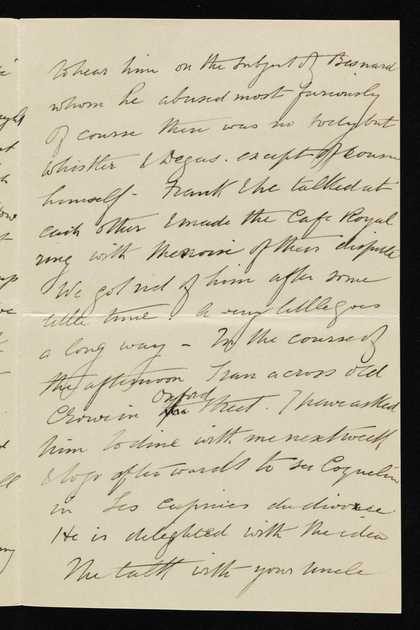 to hear him on the subject of Besnard
whom he abused most furiously
Of course there was no body but
Whistler & Degas. except of course
himself - Frank & he talked at
each other & made the Cafe Royal
ring with the noise of their dispute
We got rid of him after some
little time. A very little goes
a long way - In the course of
the afternoon I ran across old
Crowe in Oxford Street. I have asked
him to dine with me next week
& to go afterwards to see Coquelin
in Les Surprises du divorce
He is delighted with the idea
The talk with your Uncle